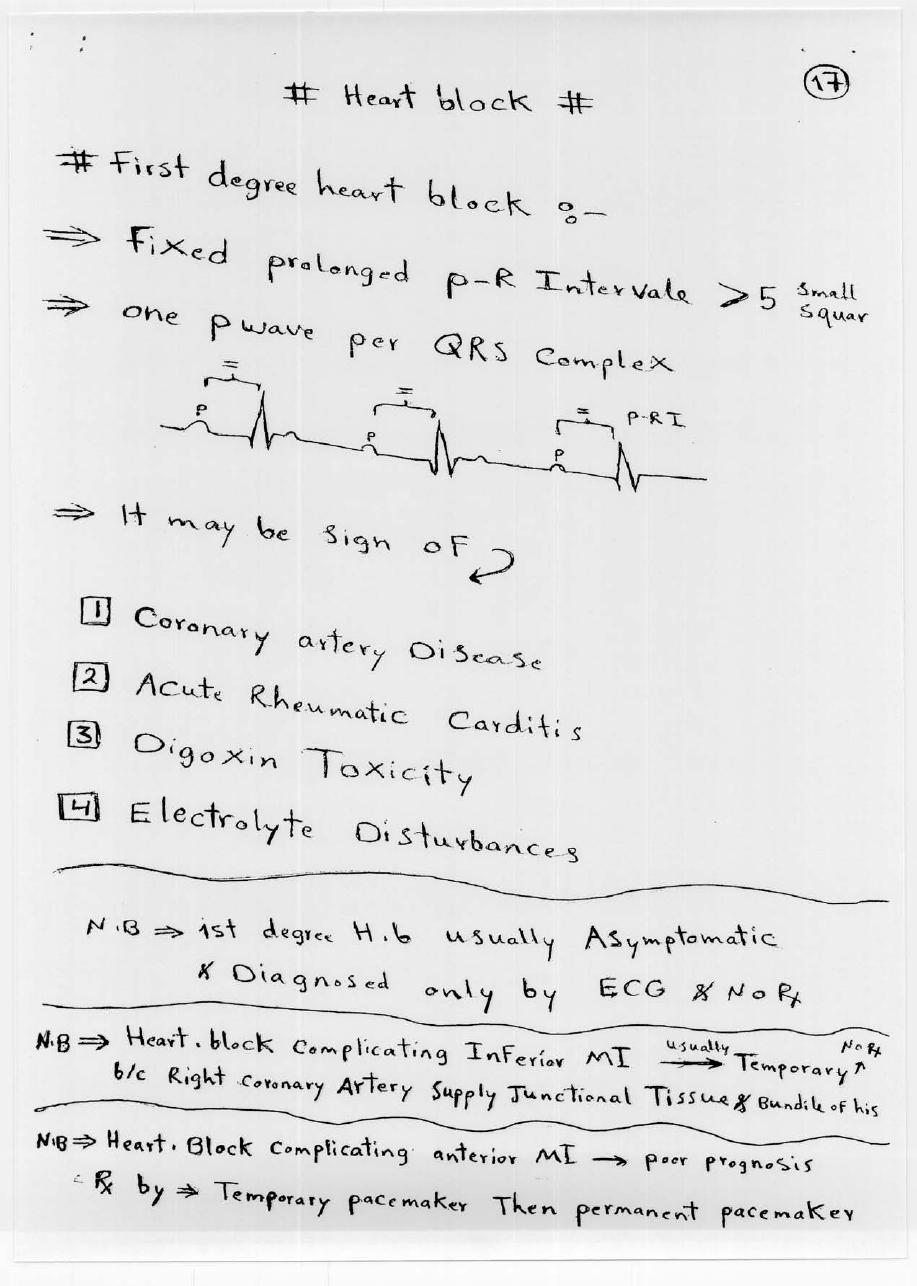 17
# Heart block #
# First degree heart block :-
⇒ Fixed prolonged p-R Intervale > 5 small squar
⇒ one p wave per QRS Complex
= = =
P P P P-R I
⇒ It may be sign of
1 Coronary artery Disease
2 Acute Rheumatic Carditis
3 Digoxin Toxicity
4 Electrolyte Disturbances
N.B ⇒ 1st degree H.b usually Asymptomatic
& Diagnosed only by ECG & No Rx
N.B ⇒ Heart.block Complicating Inferior MI usually → Temporary ↑ No Rx
b/c Right Coronary Artery Supply Junctional Tissue & Bundile of his
N.B ⇒ Heart.Block Complicating anterior MI → poor prognosis
Rx by ⇒ Temporary pacemaker Then permanent pacemaker